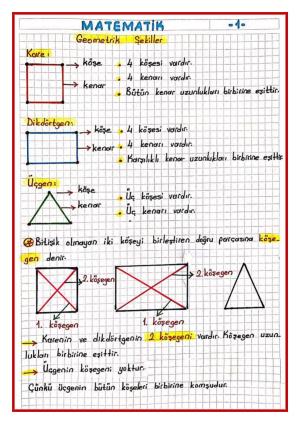 MATEMATİK -1-
Geometrik Şekiller
Kare:
köşe
kenar
4 köşesi vardır.
4 kenarı vardır.
Bütün kenar uzunlukları birbirine eşittir.
Dikdörtgen:
köşe
kenar
4 köşesi vardır.
4 kenarı vardır.
Karşılıklı kenar uzunlukları birbirine eşittir
Üçgen:
köşe
kenar
Üç köşesi vardır.
Üç kenarı vardır.
Bitişik olmayan iki köşeyi birleştiren doğru parçasına köşe-
gen denir.
2. köşegen
2. köşegen
1. köşegen
1. köşegen
Karenin ve dikdörtgenin 2 köşegeni vardır. Köşegen uzun-
lukları birbirine eşittir.
Üçgenin köşegeni yoktur.
Çünkü üçgenin bütün köşeleri birbirine komşudur.